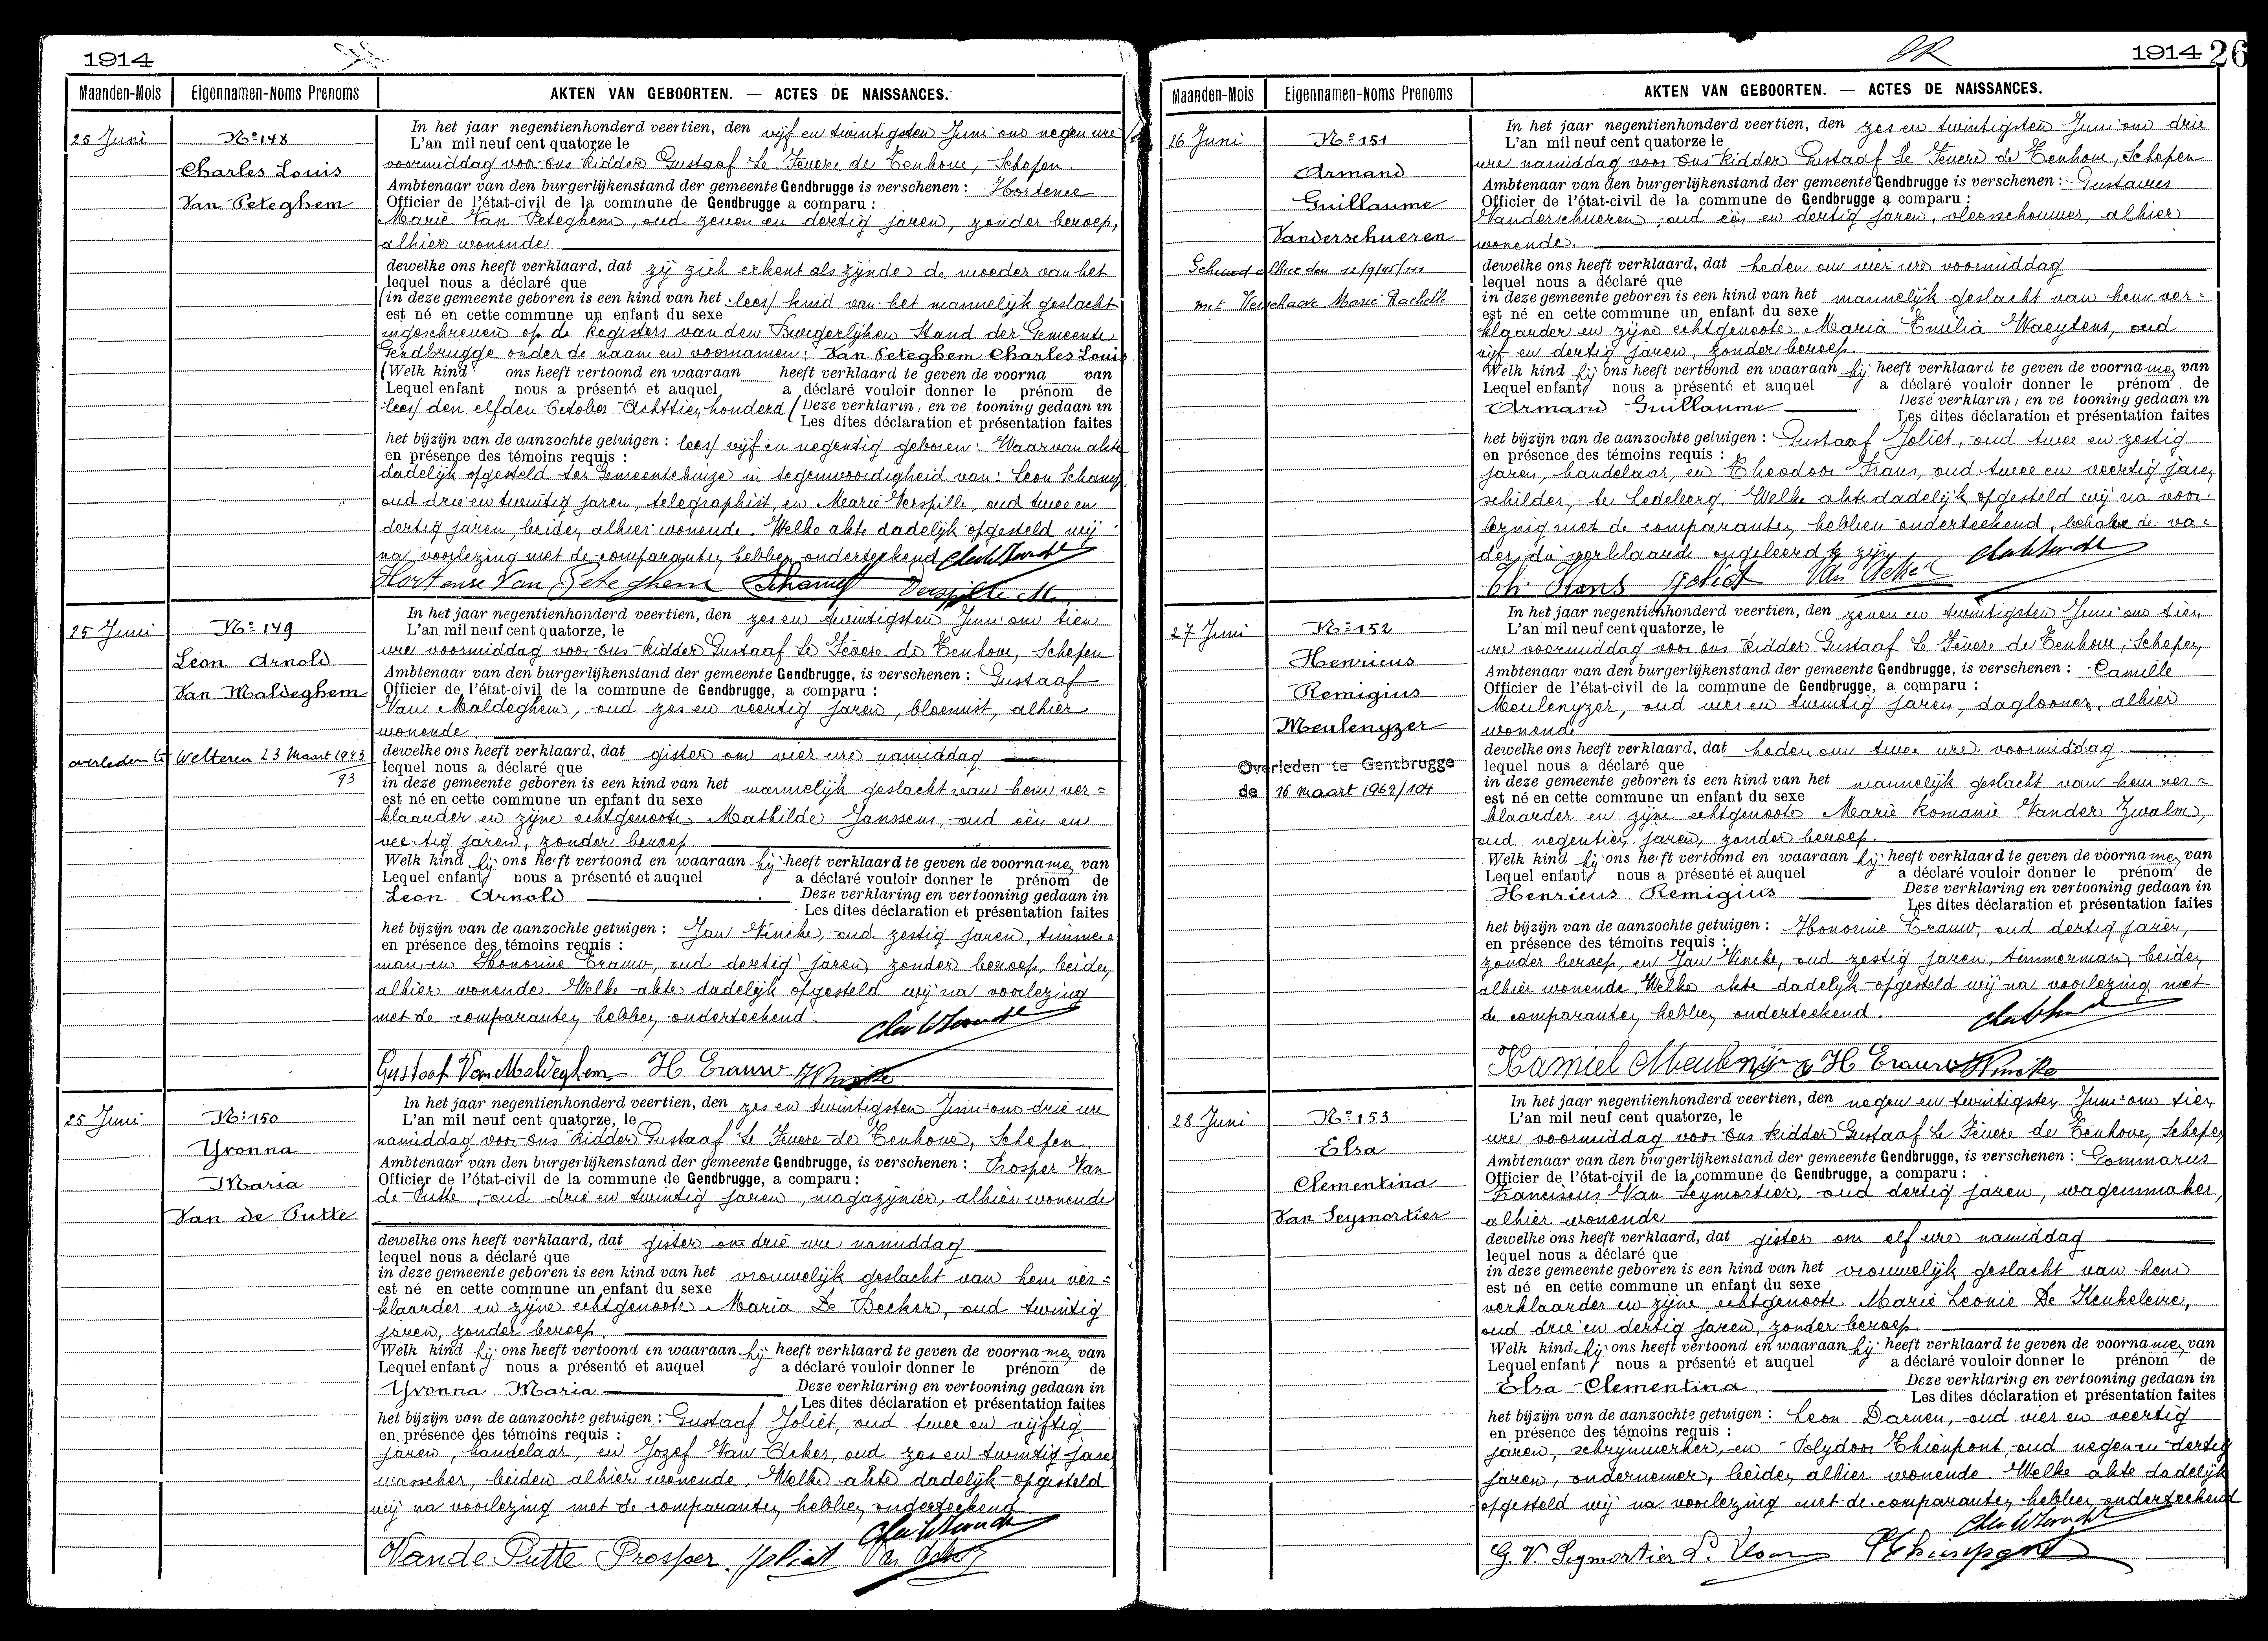 1914
Maanden-Mois Eigennamen-Noms Prenoms AKTEN VAN GEBOORTEN. — ACTES DE NAISSANCES.
25 Juni
Nº 148
Charles Louis
Van Peteghem
In het jaar negentienhonderd veertien, den vijf en twintigsten Juni om negen ure
L'an mil neuf cent quatorze le
voormiddag voor ons Ridder Gustaaf Le Fevere de Tenhove, Schepen
Ambtenaar van den burgerlijkenstand der gemeente Gendbrugge is verschenen : Hortence
Officier de l'état-civil de la commune de Gendbrugge a comparu :
Marie Van Peteghem, oud zeven en dertig jaren, zonder beroep,
alhier wonende
dewelke ons heeft verklaard, dat zij zich erkent als zijnde de moeder van het
lequel nous a déclaré que
(in deze gemeente geboren is een kind van het : lees/ kind van het mannelijk geslacht
est né en cette commune un enfant du sexe
ingeschreven op de Registers van den Burgerlijken Stand der Gemeente
Gendbrugge onder de naam en voornamen: Van Peteghem Charles Louis
(Welk kind ons heeft vertoond en waaraan heeft verklaard te geven de voorna van
Lequel enfant nous a présenté et auquel a déclaré vouloir donner le prénom de
lees/ den elfden October Achttienhonderd (Deze verklarin, en ve tooning gedaan in
Les dites déclaration et présentation faites
het bijzijn van de aanzochte getuigen : lees/ vijf en negentig geboren: Waarvan akte
en présence des témoins requis :
dadelijk opgesteld ten Gemeentehuize in tegenwoordigheid van: Leon Schamp
oud drie en twintig jaren, telegraphist, en Marie Verspille, oud twee en
dertig jaren, beiden alhier wonende. Welke akte dadelijk opgesteld wij
na voorlezing met de comparanten hebben onderteekend
Hortense Van Peteghem Schamp Verspille M.
25 Juni
Nº 149
Leon Arnold
Van Maldeghem
overleden te Wetteren 23 Maart 1943
93
In het jaar negentienhonderd veertien, den zes en twintigsten Juni om tien
L'an mil neuf cent quatorze, le
ure voormiddag voor ons Ridder Gustaaf Le Fevere de Tenhove, Schepen
Ambtenaar van den burgerlijkenstand der gemeente Gendbrugge, is verschenen : Gustaaf
Officier de l'état-civil de la commune de Gendbrugge, a comparu :
Van Maldeghem, oud zes en veertig jaren, bloemist, alhier
wonende
dewelke ons heeft verklaard, dat gister om vier ure namiddag
lequel nous a déclaré que
in deze gemeente geboren is een kind van het mannelijk geslacht van hem ver=
est né en cette commune un enfant du sexe
klaarder en zijne echtgenoote Mathilde Janssens, oud één en
veertig jaren, zonder beroep.
Welk kind hij ons heeft vertoond en waaraan hij heeft verklaard te geven de voornamen van
Lequel enfant nous a présenté et auquel a déclaré vouloir donner le prénom de
Leon Arnold Deze verklaring en vertooning gedaan in
Les dites déclaration et présentation faites
het bijzijn van de aanzochte getuigen : Jan Vincke, oud zestig jaren, timmer=
en présence des témoins requis :
man, en Honorine Erauw, oud dertig jaren, zonder beroep, beiden
alhier wonende. Welke akte dadelijk opgesteld wij na voorlezing
met de comparanten hebben onderteekend.
Gustaaf Van Maldeghem H Erauw
25 Juni
Nº 150
Yvonna
Maria
Van de Putte
In het jaar negentienhonderd veertien, den zes en twintigsten Juni om drie ure
L'an mil neuf cent quatorze, le
namiddag voor ons Ridder Gustaaf Le Fevere de Tenhove, Schepen.
Ambtenaar van den burgerlijkenstand der gemeente Gendbrugge, is verschenen : Prosper Van
Officier de l'état-civil de la commune de Gendbrugge, a comparu :
de Putte, oud drie en twintig jaren, magazijnier, alhier wonende
dewelke ons heeft verklaard, dat gister om drie ure namiddag
lequel nous a déclaré que
in deze gemeente geboren is een kind van het vrouwelijk geslacht van hem ver=
est né en cette commune un enfant du sexe
klaarder en zijne echtgenoote Maria De Becker, oud twintig
jaren, zonder beroep.
Welk kind hij ons heeft vertoond en waaraan hij heeft verklaard te geven de voornamen van
Lequel enfant nous a présenté et auquel a déclaré vouloir donner le prénom de
Yvonna Maria Deze verklaring en vertooning gedaan in
Les dites déclaration et présentation faites
het bijzijn van de aanzochte getuigen : Gustaaf Joliet, oud twee en vijftig
en présence des témoins requis :
jaren, handelaar, en Jozef Van Acker, oud zes en twintig jaren
wasscher, beiden alhier wonende. Welke akte dadelijk opgesteld
wij na voorlezing met de comparanten hebben onderteekend
Van de Putte Prosper. Joliet Van Acker J
1914 26
Maanden-Mois Eigennamen-Noms Prenoms AKTEN VAN GEBOORTEN. — ACTES DE NAISSANCES.
26 Juni
Nº 151
Armand
Guillaume
Vanderschueren
alhier den 12/9/45/111
met Verschaeve Marie Rachelle
In het jaar negentienhonderd veertien, den zes en twintigsten Juni om drie
L'an mil neuf cent quatorze le
ure namiddag voor ons Ridder Gustaaf Le Fevere de Tenhove, Schepen
Ambtenaar van den burgerlijkenstand der gemeente Gendbrugge is verschenen : Gustavus
Officier de l'état-civil de la commune de Gendbrugge a comparu :
Vanderschueren, oud één en dertig jaren, vleeschouwer, alhier
wonende.
dewelke ons heeft verklaard, dat heden om vier ure voormiddag
lequel nous a déclaré que
in deze gemeente geboren is een kind van het mannelijk geslacht van hem ver=
est né en cette commune un enfant du sexe
klaarder en zijne echtgenoote Maria Emilia Waeytens, oud
vijf en dertig jaren, zonder beroep.
Welk kind hij ons heeft vertoond en waaraan hij heeft verklaard te geven de voornamen van
Lequel enfant nous a présenté et auquel a déclaré vouloir donner le prénom. de
Armand Guillaume Deze verklarin, en ve tooning gedaan in
Les dites déclaration et présentation faites
het bijzijn van de aanzochte getuigen : Gustaaf Joliet, oud twee en zestig
en présence des témoins requis :
jaren, handelaar, en Theodoor Frans, oud twee en veertig jaren
schilder, te Ledeberg. Welke akte dadelijk opgesteld wij na voor=
lezing met de comparanten hebben onderteekend, behalve de va=
der die verklaarde ongeleerd te zijn
Joliet
27 Juni
Nº 152
Henricus
Remigius
Meulenyzer
Overleden te Gentbrugge
de 16 maart 1962/104
In het jaar negentienhonderd veertien, den zeven en twintigsten Juni om tien
L'an mil neuf cent quatorze, le
ure voormiddag voor ons Ridder Gustaaf Le Fevere de Tenhove, Schepen
Ambtenaar van den burgerlijkenstand der gemeente Gendbrugge, is verschenen : Camille
Officier de l'état-civil de la commune de Gendbrugge, a comparu :
Meulenyzer, oud vier en twintig jaren, daglooner, alhier
wonende
dewelke ons heeft verklaard, dat heden om twee ure voormiddag
lequel nous a déclaré que
in deze gemeente geboren is een kind van het mannelijk geslacht van hem ver=
est né en cette commune un enfant du sexe
klaarder en zijne echtgenoote Marie Romanie Vander Zwalm,
oud negentien jaren, zonder beroep.
Welk kind hij ons heeft vertoond en waaraan hij heeft verklaard te geven de voornamen van
Lequel enfant nous a présenté et auquel a déclaré vouloir donner le prénom de
Henricus Remigius Deze verklaring en vertooning gedaan in
Les dites déclaration et présentation faites
het bijzijn van de aanzochte getuigen : Honorine Erauw, oud dertig jaren,
en présence des témoins requis :
zonder beroep, en Jan Vincke, oud zestig jaren, timmerman, beiden
alhier wonende. Welke akte dadelijk opgesteld wij na voorlezing met
de comparanten hebben onderteekend.
Kamiel Meulenijzer H Erauw Vincke
28 Juni
Nº 153
Elsa
Clementina
Van Seymortier
In het jaar negentienhonderd veertien, den negen en twintigsten Juni om tien
L'an mil neuf cent quatorze, le
ure voormiddag voor ons Ridder Gustaaf Le Fevere de Tenhove, Schepen
Ambtenaar van den burgerlijkenstand der gemeente Gendbrugge, is verschenen : Gommarus
Officier de l'état-civil de la commune de Gendbrugge, a comparu :
Franciscus Van Seymortier, oud dertig jaren, wagenmaker,
alhier wonende
dewelke ons heeft verklaard, dat gister om elf ure namiddag
lequel nous a déclaré que
in deze gemeente geboren is een kind van het vrouwelijk geslacht van hem
est né en cette commune un enfant du sexe
verklaarder en zijne echtgenoote Marie Leonie De Keukeleire,
oud drie en dertig jaren, zonder beroep.
Welk kind hij ons heeft vertoond en waaraan hij heeft verklaard te geven de voornamen van
Lequel enfant nous a présenté et auquel a déclaré vouloir donner le prénom de
Elsa Clementina Deze verklaring en vertooning gedaan in
Les dites déclaration et présentation faites
het bijzijn van de aanzochte getuigen : Leon Daenen, oud vier en veertig
en présence des témoins requis :
jaren, schrynwerker, en Polydoor Thienpont, oud negen en dertig
jaren, ondernemer, beiden alhier wonende Welke akte dadelijk
opgesteld wij na voorlezing met de comparanten hebben onderteekend
G. V. Seymortier Thienpont